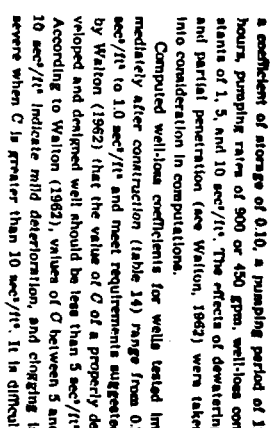 a coefficient of storage of 0.10, a pumping period of 1
hours, pumping rates of 900 or 450 gpm, well-loss con
stants of 1, 5, and 10 sec²/ft⁵. The effects of dewaterin
and partial penetration (see Walton, 1962) were take
into consideration in computations.
Computed well-loss coefficients for wells tested im
mediately after construction (table 14) range from 0.
sec²/ft⁵ to 1.0 sec²/ft⁵ and meet requirements suggeste
by Walton (1962) that the value of C of a properly de
veloped and designed well should be less than 5 sec²/ft
According to Walton (1962), values of C between 5 an
10 sec²/ft⁵ indicate mild deterioration, and clogging i
severe when C is greater than 10 sec²/ft⁵. It is difficul